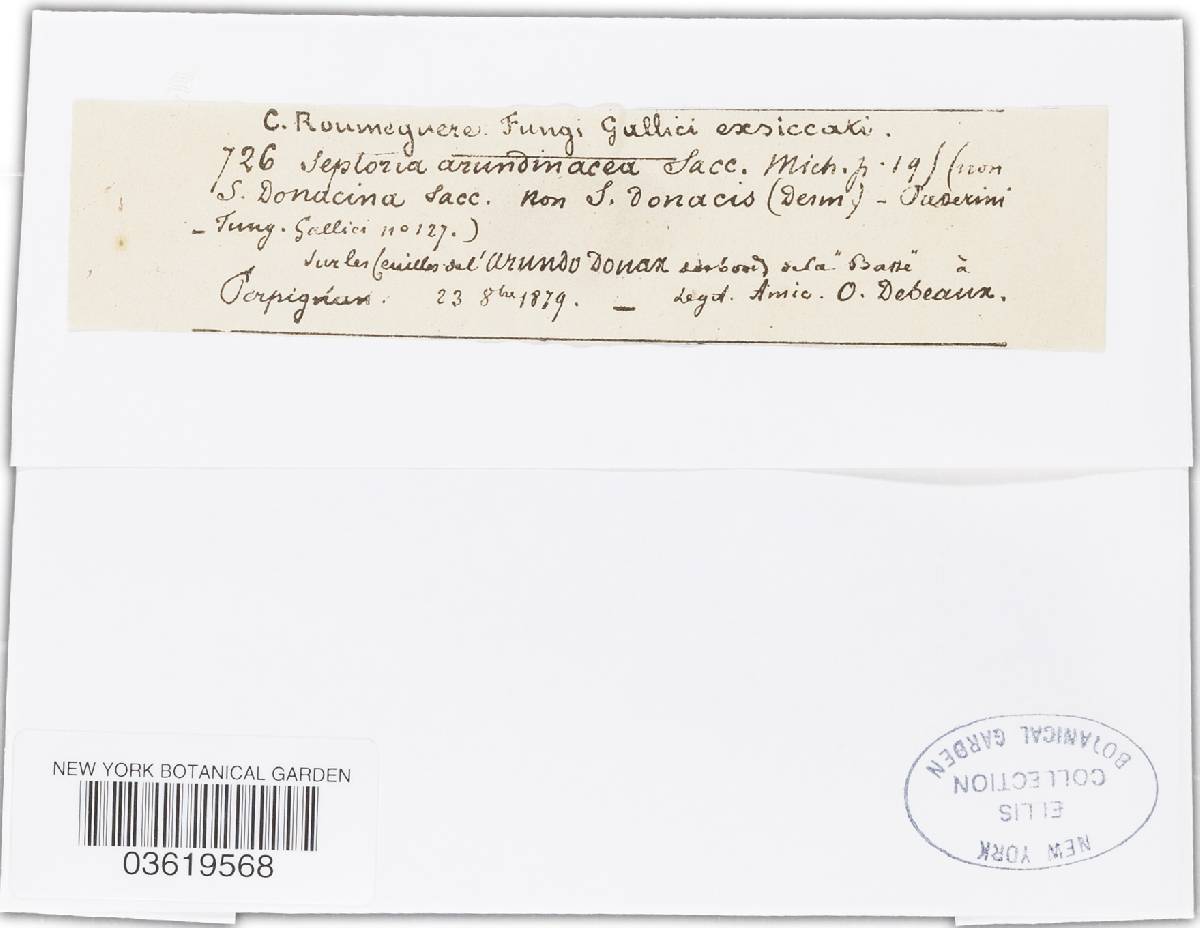 C. Roumeguere. Fungi Gallici exsiccati.
726 Septoria arundinacea Sacc. Mich. p. 195 (non
S. Donacina Sacc. non S. Donacis (Desm) -
- Fung. Gallici no 127.)
Sur les feuilles de l' Arundo Donax de la "Basse" à
Perpignan. 23 8bre 1879. — Legit. Amic. O. Debeaux.
NEW YORK BOTANICAL GARDEN
03619568
NEW YORK
ELLIS
COLLECTION
BOTANICAL GARDEN